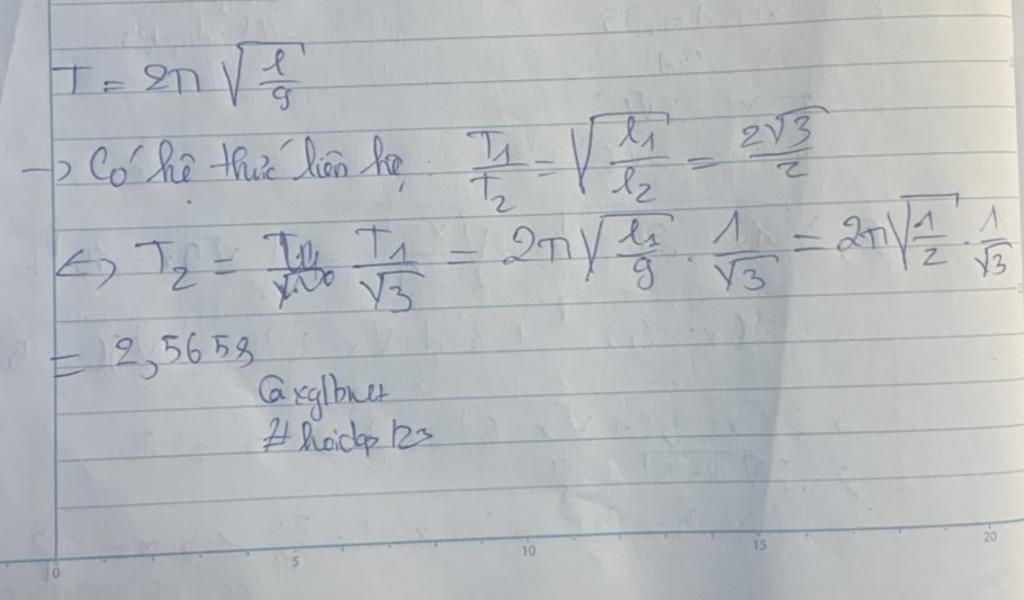 T = 2π √(l/g)
→ Có hệ thức liên hệ. T₁/T₂ = √(l₁/l₂) = 2√3/2
<=> T₂ = T₁/√3 = 2π√(l₁/g) . 1/√3 = 2π√(1/2) . 1/√3
= 2,565s
@xglbnet
#hoidap123
0 5 10 15 20